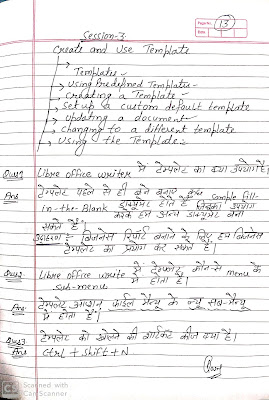 Page No. 13
Date
Session-3
Create and Use Template
→ Templates
→ Using Predefined Templates
→ Creating a Template
→ Set up a custom default template
→ Updating a document
→ Changing to a different template
→ Using the Template
Ques1 Libre office writer में टेम्पलेट का क्या उपयोग है?
Ans टेम्पलेट पहले से ही बने बनाए कुछ Sample fill-
in-the-Blank डाक्यूमेंट होते हैं जिनका उपयोग
करके हम अन्य डाक्यूमेंट बना
सकते हैं।
उदाहरण = बिजनेस रिपोर्ट बनाने के लिए हम बिजनेस
टेम्पलेट का प्रयोग कर सकते हैं।
Ques2 Libre office write में टेम्पलेट कौन-से menu के
sub-menu में होता है।
Ans टेम्पलेट आप्शन फाईल मैन्यू के न्यू सब-मैन्यू
में होता है।
Ques3 टेम्पलेट को खोलने की शार्टकट कीज क्या है।
Ans Ctrl + Shift + N
CS Scanned with
CamScanner